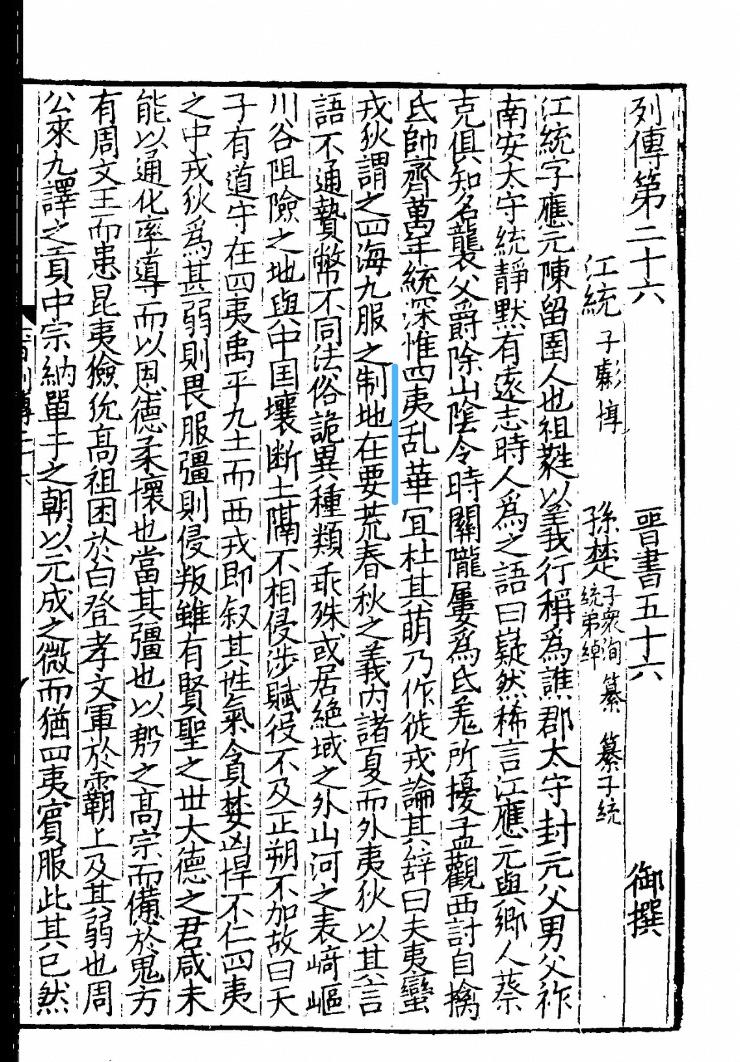 列傳第二十六 晉書五十六 御撰
江統 子虨 惇 孫楚 子衆 洵 纂 纂子統 統弟綽
江統字應元陳留圉人也祖蕤以義行稱為譙郡太守封亢父男父祚
南安太守統靜默有遠志時人為之語曰嶷然稀言江應元與鄉人蔡
克俱知名襲父爵除山陰令時關隴屢為氐羌所擾孟觀西討自擒
氐帥齊萬年統深惟四夷乱華冝杜其萌乃作徙戎論其辭曰夫夷蠻
戎狄謂之四海九服之制地在要荒春秋之義内諸夏而外夷狄以其言
語不通贄幣不同法俗詭異種類乖殊或居絶域之外山河之表崎嶇
川谷阻險之地與中国壤断土隔不相侵涉賦役不及正朔不加故曰天
子有道守在四夷禹平九土而西戎即叙其性氣貪婪凶悍不仁四夷
之中戎狄為甚弱則畏服彊則侵叛雖有賢聖之世大德之君咸未
能以通化率導而以恩德柔懷也當其彊也以殷之高宗而憊於鬼方
有周文王而患昆夷獫狁高祖困於白登孝文軍於霸上及其弱也周
公來九譯之貢中宗納單于之朝以元成之微而猶四夷賔服此其已然